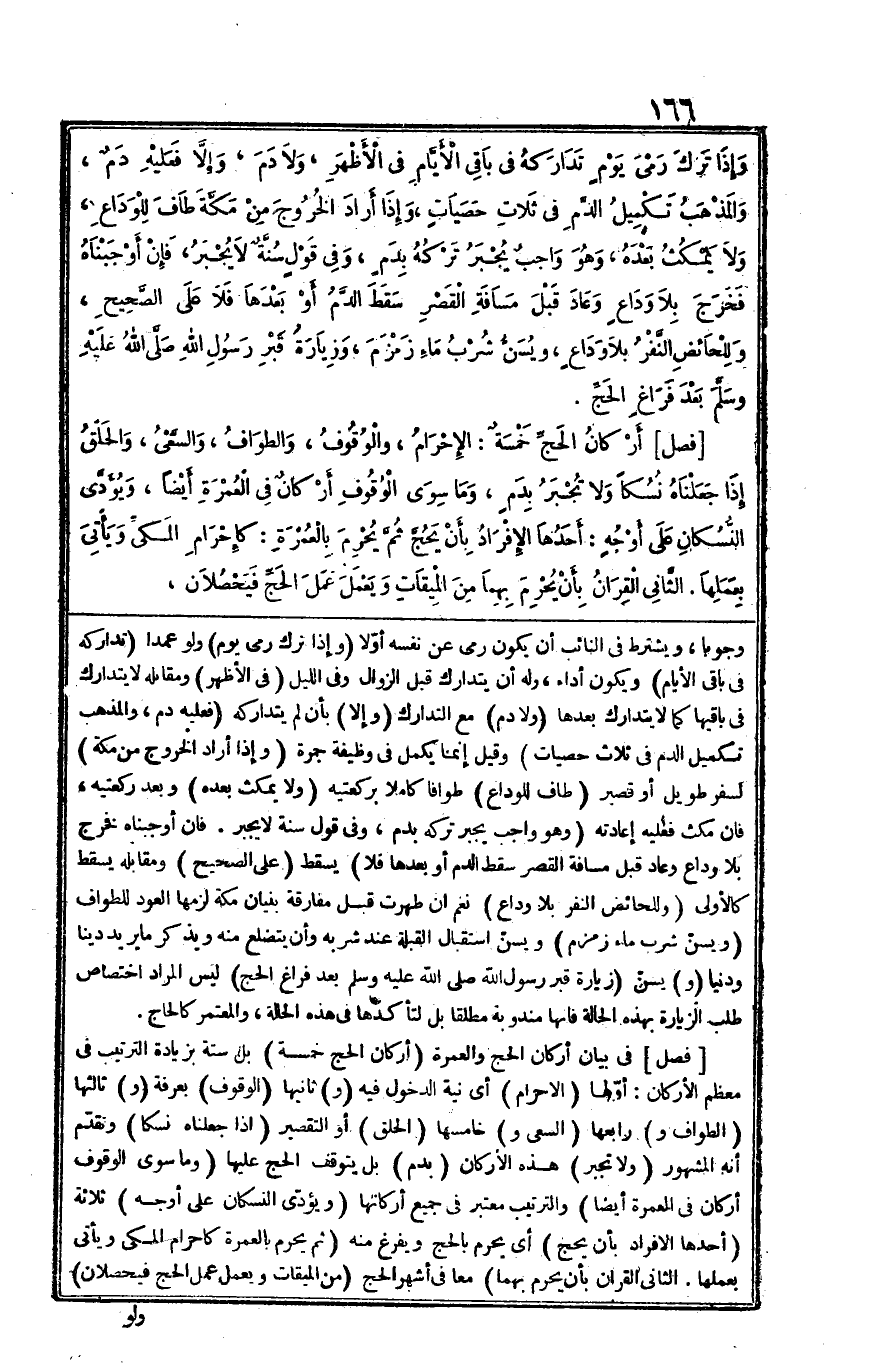 ١٦٦
وَإِذَا تَرَكَ رَمْىَ يَوْمٍ تَدَارَكَهُ فِى بَاقِى الْأَيَّامِ فِى الْأَظْهَرِ ، وَلَا دَمَ ، وَإِلَّا فَعَلَيْهِ دَمٌ ،
وَالْمَذْهَبُ تَكْمِيلُ الدَّمِ فِى ثَلَاثِ حَصَيَاتٍ ، وَإِذَا أَرَادَ الْخُرُوجَ مِنْ مَكَّةَ طَافَ لِلْوَدَاعِ ،
وَلَا يَمْكُثُ بَعْدَهُ ، وَهُوَ وَاجِبٌ يُجْبَرُ تَرْكُهُ بِدَمٍ ، وَفِى قَوْلٍ سُنَّةٌ لَا يُجْبَرُ ، فَإِنْ أَوْجَبْنَاهُ
فَخَرَجَ بِلَا وَدَاعٍ وَعَادَ قَبْلَ مَسَافَةِ الْقَصْرِ سَقَطَ الدَّمُ أَوْ بَعْدَهَا فَلَا عَلَى الصَّحِيحِ ،
وَلِلْحَائِضِ النَّفْرُ بِلَا وَدَاعٍ ، وَيُسَنُّ شُرْبُ مَاءِ زَمْزَمَ ، وَزِيَارَةُ قَبْرِ رَسُولِ اللهِ صَلَّى اللهُ عَلَيْهِ
وَسَلَّمَ بَعْدَ فَرَاغِ الْحَجِّ .
[فصل] أَرْكَانُ الْحَجِّ خَمْسَةٌ : الْإِحْرَامُ ، وَالْوُقُوفُ ، وَالطَّوَافُ ، وَالسَّعْىُ ، وَالْحَلْقُ
إِذَا جَعَلْنَاهُ نُسُكاً وَلَا تُجْبَرُ بِدَمٍ ، وَمَا سِوَى الْوُقُوفِ أَرْكَانٌ فِى الْعُمْرَةِ أَيْضاً ، وَيُؤَدَّى
النُّسُكَانِ عَلَى أَوْجُهٍ : أَحَدُهَا الْإِفْرَادُ بِأَنْ يَحُجَّ ثُمَّ يُحْرِمَ بِالْعُمْرَةِ : كَإِحْرَامِ الْمَكِّىِّ وَيَأْتِىَ
بِعَمَلِهَا . الثَّانِى الْقِرَانُ بِأَنْ يُحْرِمَ بِهِمَا مِنَ الْمِيقَاتِ وَيَعْمَلَ عَمَلَ الْحَجِّ فَيَحْصُلَانِ ،
وجوبا ، ويشترط فى النائب أن يكون رمى عن نفسه أوّلا (وإذا ترك رمى يوم) ولو عمدا (تداركه
فى باقى الأيام) ويكون أداء ، وله أن يتدارك قبل الزوال وفى الليل (فى الأظهر) ومقابله لا يتدارك
فى باقيها كما لا يتدارك بعدها (ولا دم) مع التدارك (وإلا) بأن لم يتداركه (فعليه دم ، والمذهب
تكميل الدم فى ثلاث حصيات) وقيل إنما يكمل فى وظيفة جمرة (وإذا أراد الخروج من مكة)
لسفر طويل أو قصير (طاف للوداع) طوافا كاملا بركعتيه (ولا يمكث بعده) وبعد ركعتيه ،
فان مكث فعليه إعادته (وهو واجب يجبر تركه بدم ، وفى قول سنة لا يجبر . فان أوجبناه فخرج
بلا وداع وعاد قبل مسافة القصر سقط الدم أو بعدها فلا) يسقط (على الصحيح) ومقابله يسقط
كالأولى (وللحائض النفر بلا وداع) نعم ان طهرت قبل مفارقة بنيان مكة لزمها العود للطواف
(ويسنّ شرب ماء زمزم) ويسنّ استقبال القبلة عند شربه وأن يتضلع منه ويذكر ما يريد دينا
ودنيا (و) يسنّ (زيارة قبر رسول الله صلى الله عليه وسلم بعد فراغ الحج) ليس المراد اختصاص
طلب الزيارة بهذه الحالة فانها مندوبة مطلقا بل لتأكدّها فى هذه الحالة ، والمعتمر كالحاج .
[فصل] فى بيان أركان الحج والعمرة (أركان الحج خمسة) بل ستة بزيادة الترتيب فى
معظم الأركان : أوّلها (الاحرام) أى نية الدخول فيه (و) ثانيها (الوقوف) بعرفة (و) ثالثها
(الطواف و) رابعها (السعى و) خامسها (الحلق) أو التقصير (اذا جعلناه نسكا) وتقدّم
أنه المشهور (ولا تجبر) هذه الأركان (بدم) بل يتوقف الحج عليها (وما سوى الوقوف
أركان فى العمرة أيضا) والترتيب معتبر فى جميع أركانها (ويؤدّى النسكان على أوجه) ثلاثة
(أحدها الافراد بأن يحج) أى يحرم بالحج ويفرغ منه (ثم يحرم بالعمرة كاحرام المكى ويأتى
بعملها . الثانى القران بأن يحرم بهما) معا فى أشهر الحج (من الميقات ويعمل عمل الحج فيحصلان)
ولو